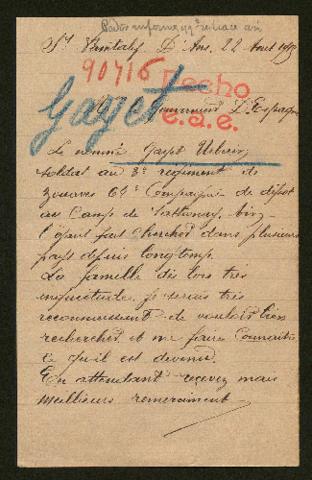 St Vansalef D'Ans, 22 Aout 191
90716
Hecho
e.a.e.
Gayet
D'Espagne
Le nommé Gayet Urbain
soldat au 3e regiment de
zouaves 61e Compagnie de dépôt
au Camp de Sathonay,
l'ayant fait chercher dans plusieurs
pays depuis longtemps.
La famille dès lors très
inquietude, je serais très
reconnaissant de vouloir bien
rechercher et me faire Connaitre
ce qu'il est devenu.
En attendant recevez mais
meilleurs remerciment